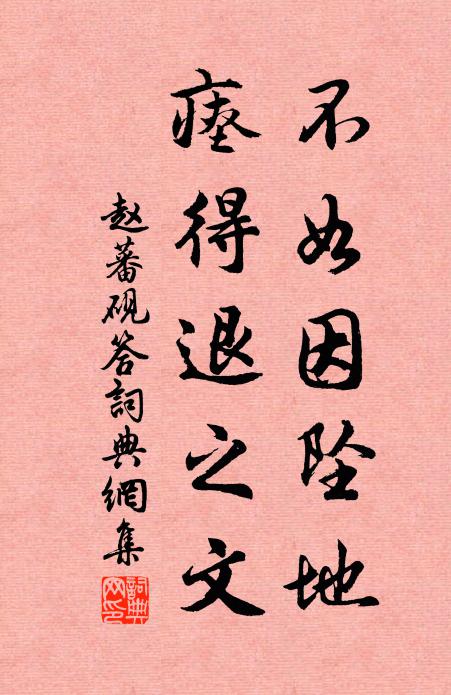 不如因坠地
瘗得退之文
赵蕃砚答詞典網集
詞典
网印